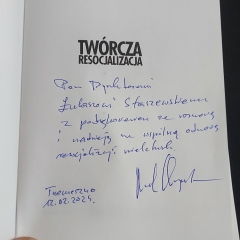 TWÓRCZA
RESOCJALIZACJA
Pan Dyrektorowi
Łukaszowi Staszewskiemu
z podziękowaniem za rozmowę
i nadzieją na wspólną odnowę
resocjalizacji nieletnich.
12.02.2024.